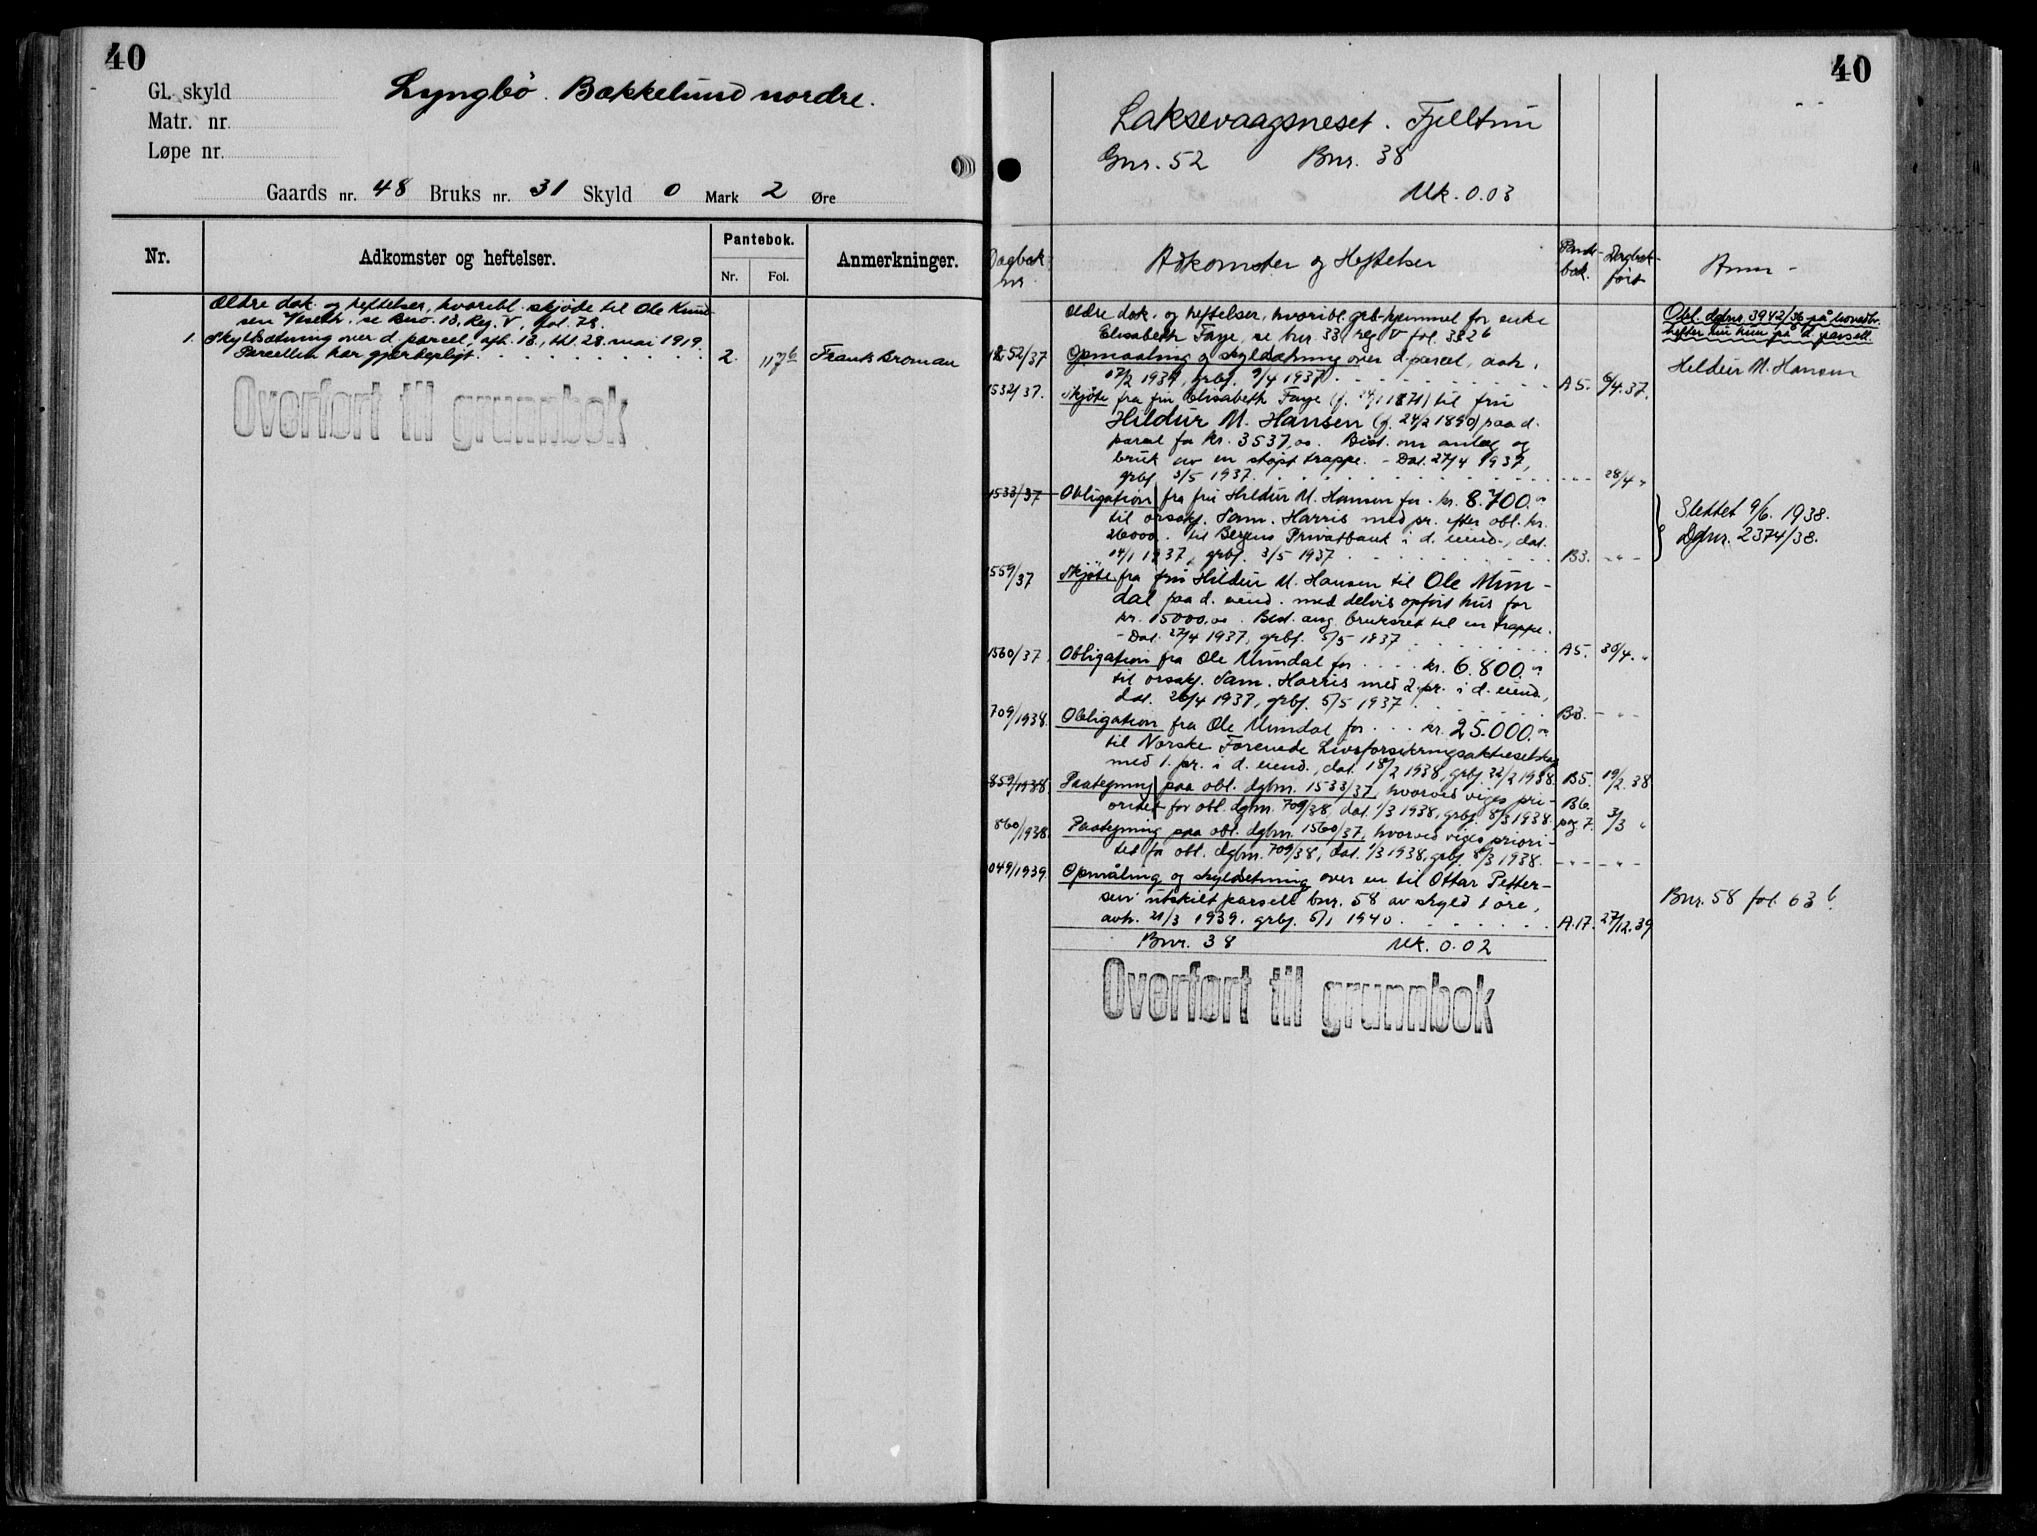 40
Gl. skyld
Matr. nr.
Løpe nr.
Lyngbö. Bækkelund nordre.
Gaards nr. 48 Bruks nr. 31 Skyld 0 Mark 2 Øre
Nr. Adkomster og heftelser. Pantebok. Anmerkninger.
Nr. Fol.
Ældre dok. og heftelser, hvoribl. skjøde til Ole Knud-
sen, se Bno. 13, Reg. V, fol. 78.
1. Skyldsætning over d. parcel, afh. 13, thl. 28. mai 1919.
Parcellen har gjerdepligt. 2. 117b Frantz Broman
Overført til grunnbok
40
Laksevaagsneset. Fjelltun
Gnr. 52 Bnr. 38
Mk. 0.03
Dagbok nr. Adkomster og Heftelser Pantebok. Dagbokført Anm-
Ældre dok. og heftelser, hvoribl. grb.hjemmel for enke
Elisabeth Faye, se bnr. 33, reg V fol. 332b
Obl. dgbnr. 3942/36 på hovedbr.
hefter hui kun på d. parsell.
1252/37 Opmaaling og skyldsætning over d. parcel, avh.
17/2 1937, grbf. 9/4 1937 A5. 6/4.37.
Hildur M. Hansen
1532/37. Skjøte fra fru Elisabeth Faye (f. 1871) til fru
Hildur M. Hansen (f. 24/2 1890) paa d.
parcel for kr. 3537,00. Best. om anlæg og
bruk av en støpt trappe. - Dat. 27/4 1937,
grbf. 3/5 1937. - " - 28/4 "
1533/37 Obligation fra fru Hildur M. Hansen for kr. 8.700.00
til orsakf. Sam. Harris med pr. efter obl. kr.
26000.- til Bergens Privatbank i d. eiend., dat.
14/1 1937, grbf. 3/5 1937 B3. - " -
Slettet 9/6. 1938.
Dgbnr. 2374/38.
1559/37 Skjøte fra fru Hildur M. Hansen til Ole Mun-
dal paa d. eiend. med delvis opført hus for
kr. 15000,00. Best. ang. bruksret til en trappe.
- Dat. 27/4 1937, grbf. 5/5 1837 A5. 30/4. "
1560/37. Obligation fra Ole Mundal for kr. 6.800.00
til orsakf. Sam. Harris med 2. pr. i d. eiend.,
dat. 26/4 1937, grbf. 5/5 1937 B3. - " -
709/1938. Obligation fra Ole Mundal for kr. 25.000.00
til Norske Forenede Livsforsikringsaktieselskap
med 1. pr. i d. eiend., dat. 18/2 1938, grbf. 22/2 1938. B5. 19/2.38
859/1938. Paategning paa obl. dgbnr. 1533/37, hvorved viges pri-
oritet for obl. dgbnr. 709/38, dat. 1/3 1938, grbf. 8/3 1938. B6. pag. 7. 3/3 "
860/1938 Paategning paa obl. dgbnr. 1560/37, hvorved viges priori-
tet for obl. dgbnr. 709/38, dat. 1/3 1938, grbf. 8/3 1938. - " - - " -
049/1939. Opmåling og skyldsetning over en til Ottar Petter-
sen utskilt parsell bnr. 58 av skyld 1 øre,
avh. 21/3 1939. grbf. 5/1 1940. A.17. 27/12.39
Bnr. 58 fol. 63 b.
Bnr. 38 Mk. 0.02
Overført til grunnbok